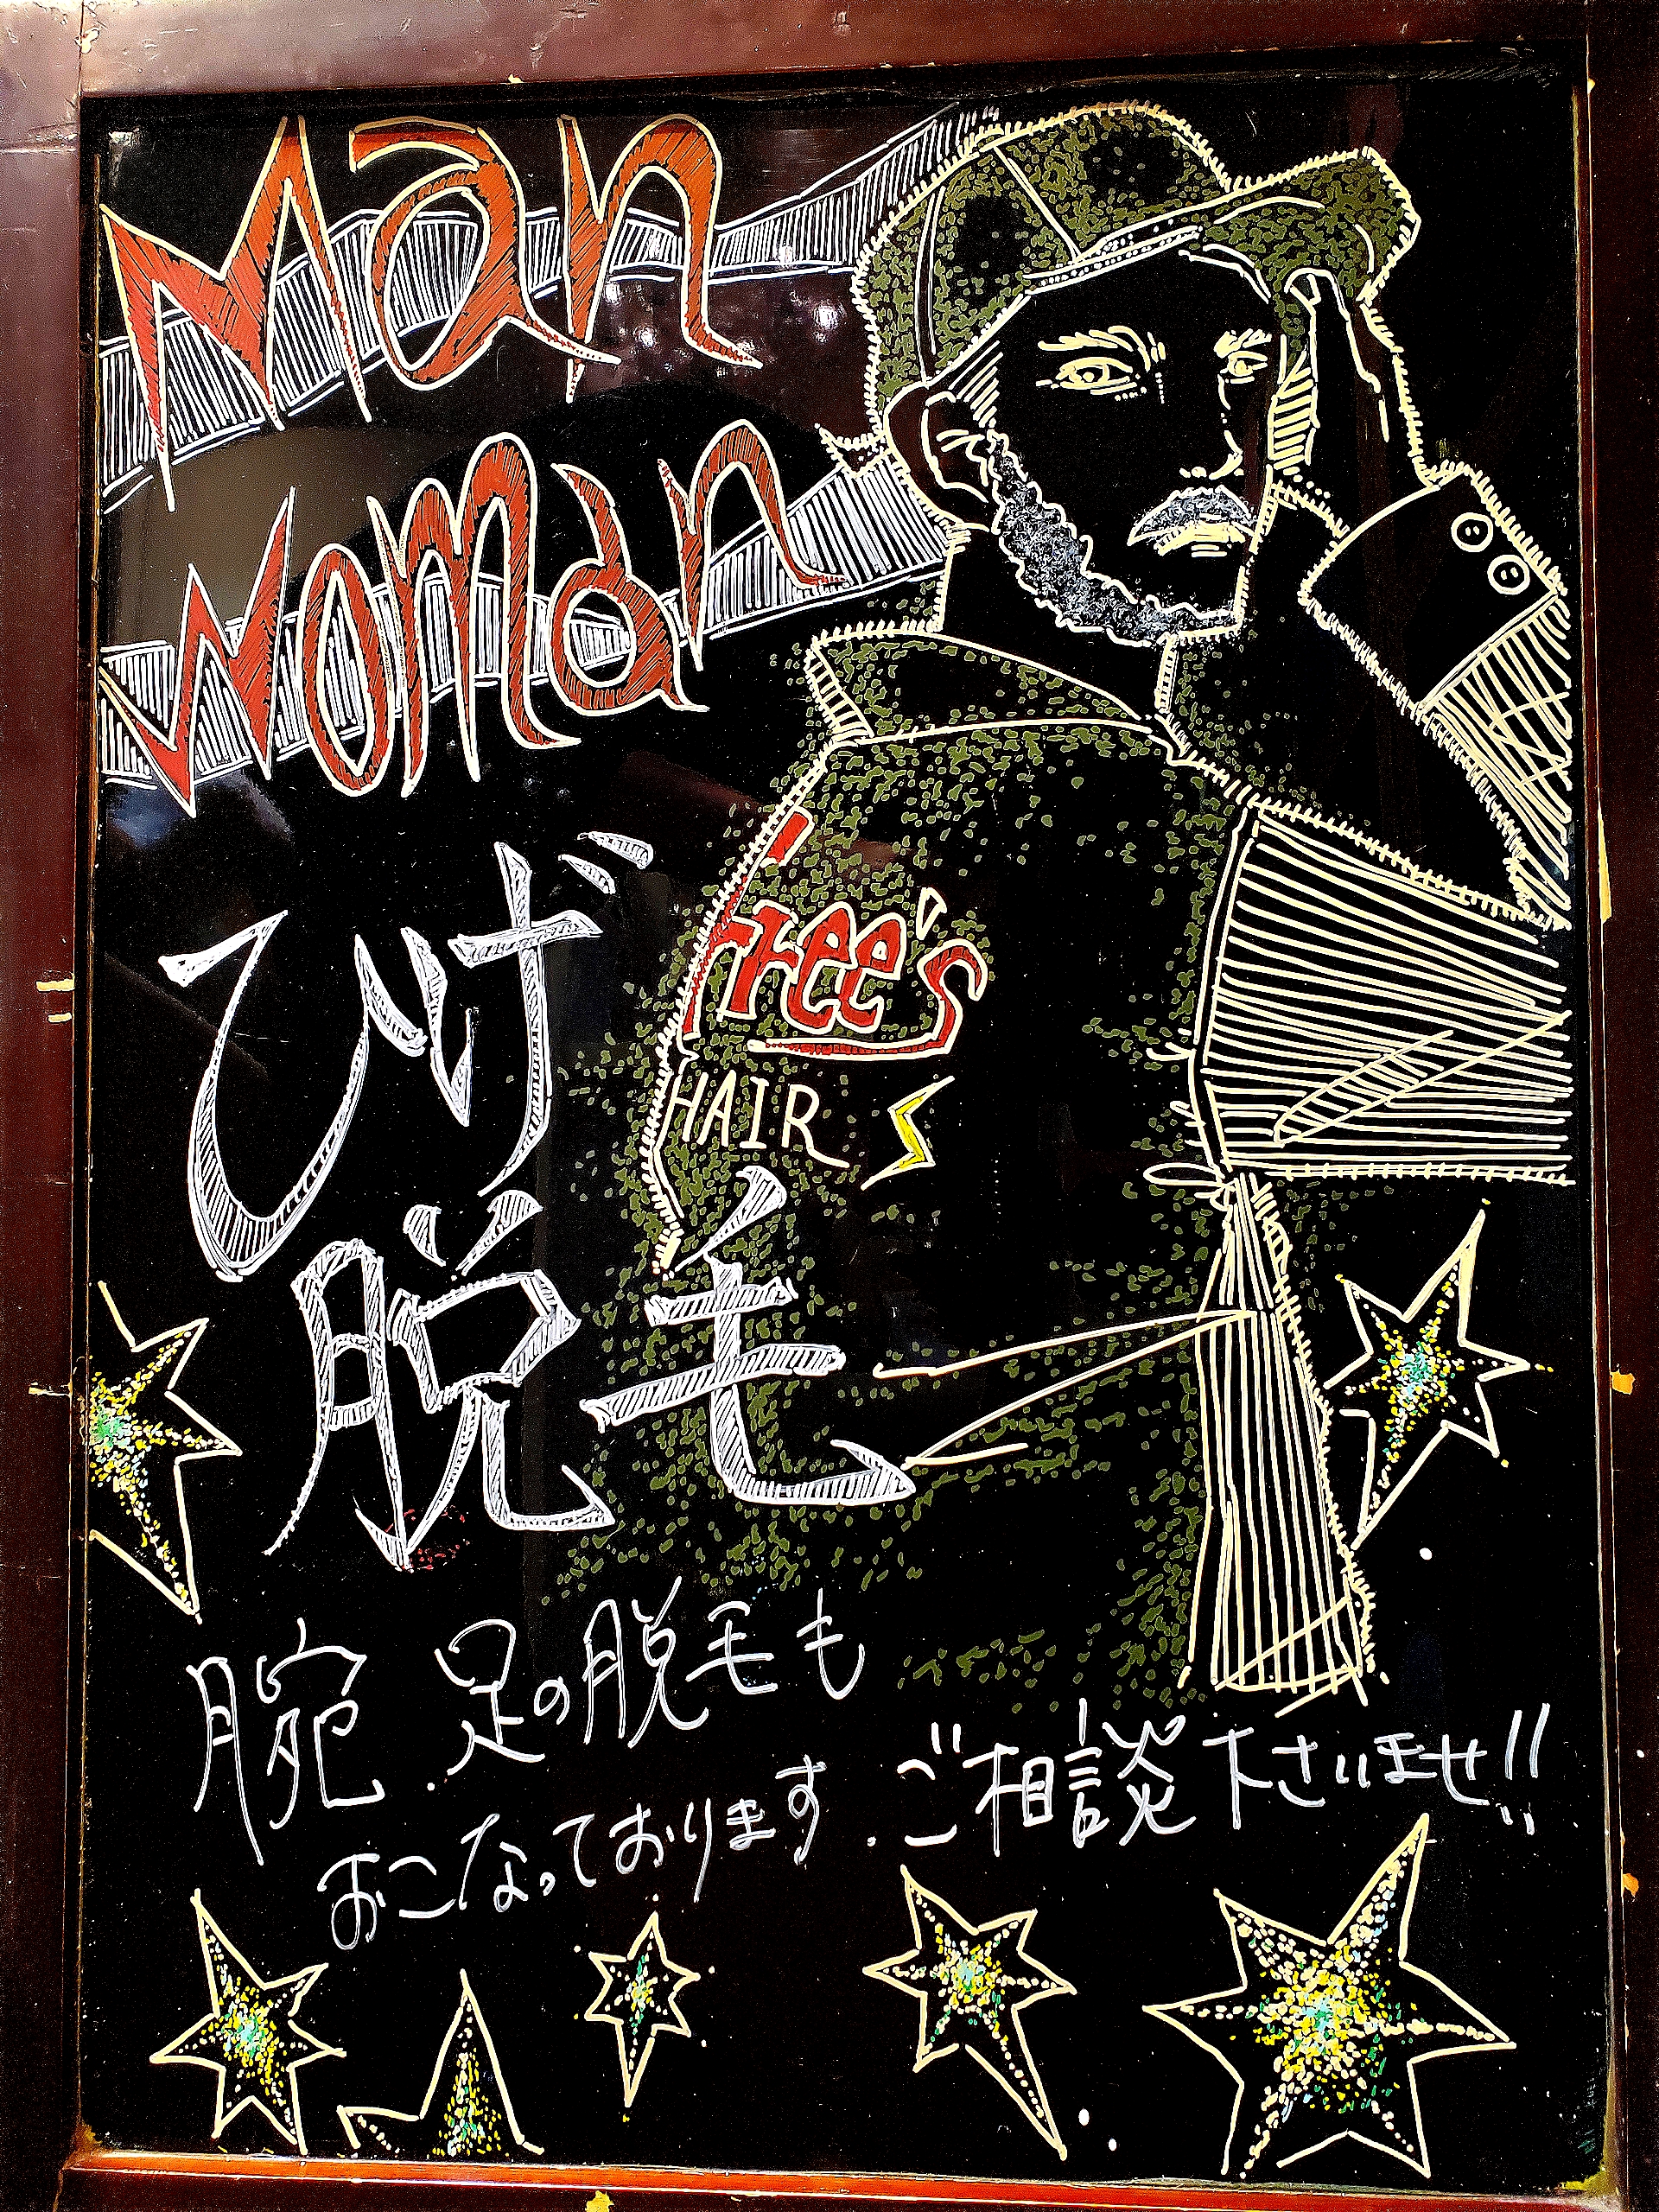 Man
Woman
ひげ
脱毛
Free's
HAIR
腕 . 足の脱毛も
おこなっております . ご相談下さいませ!!